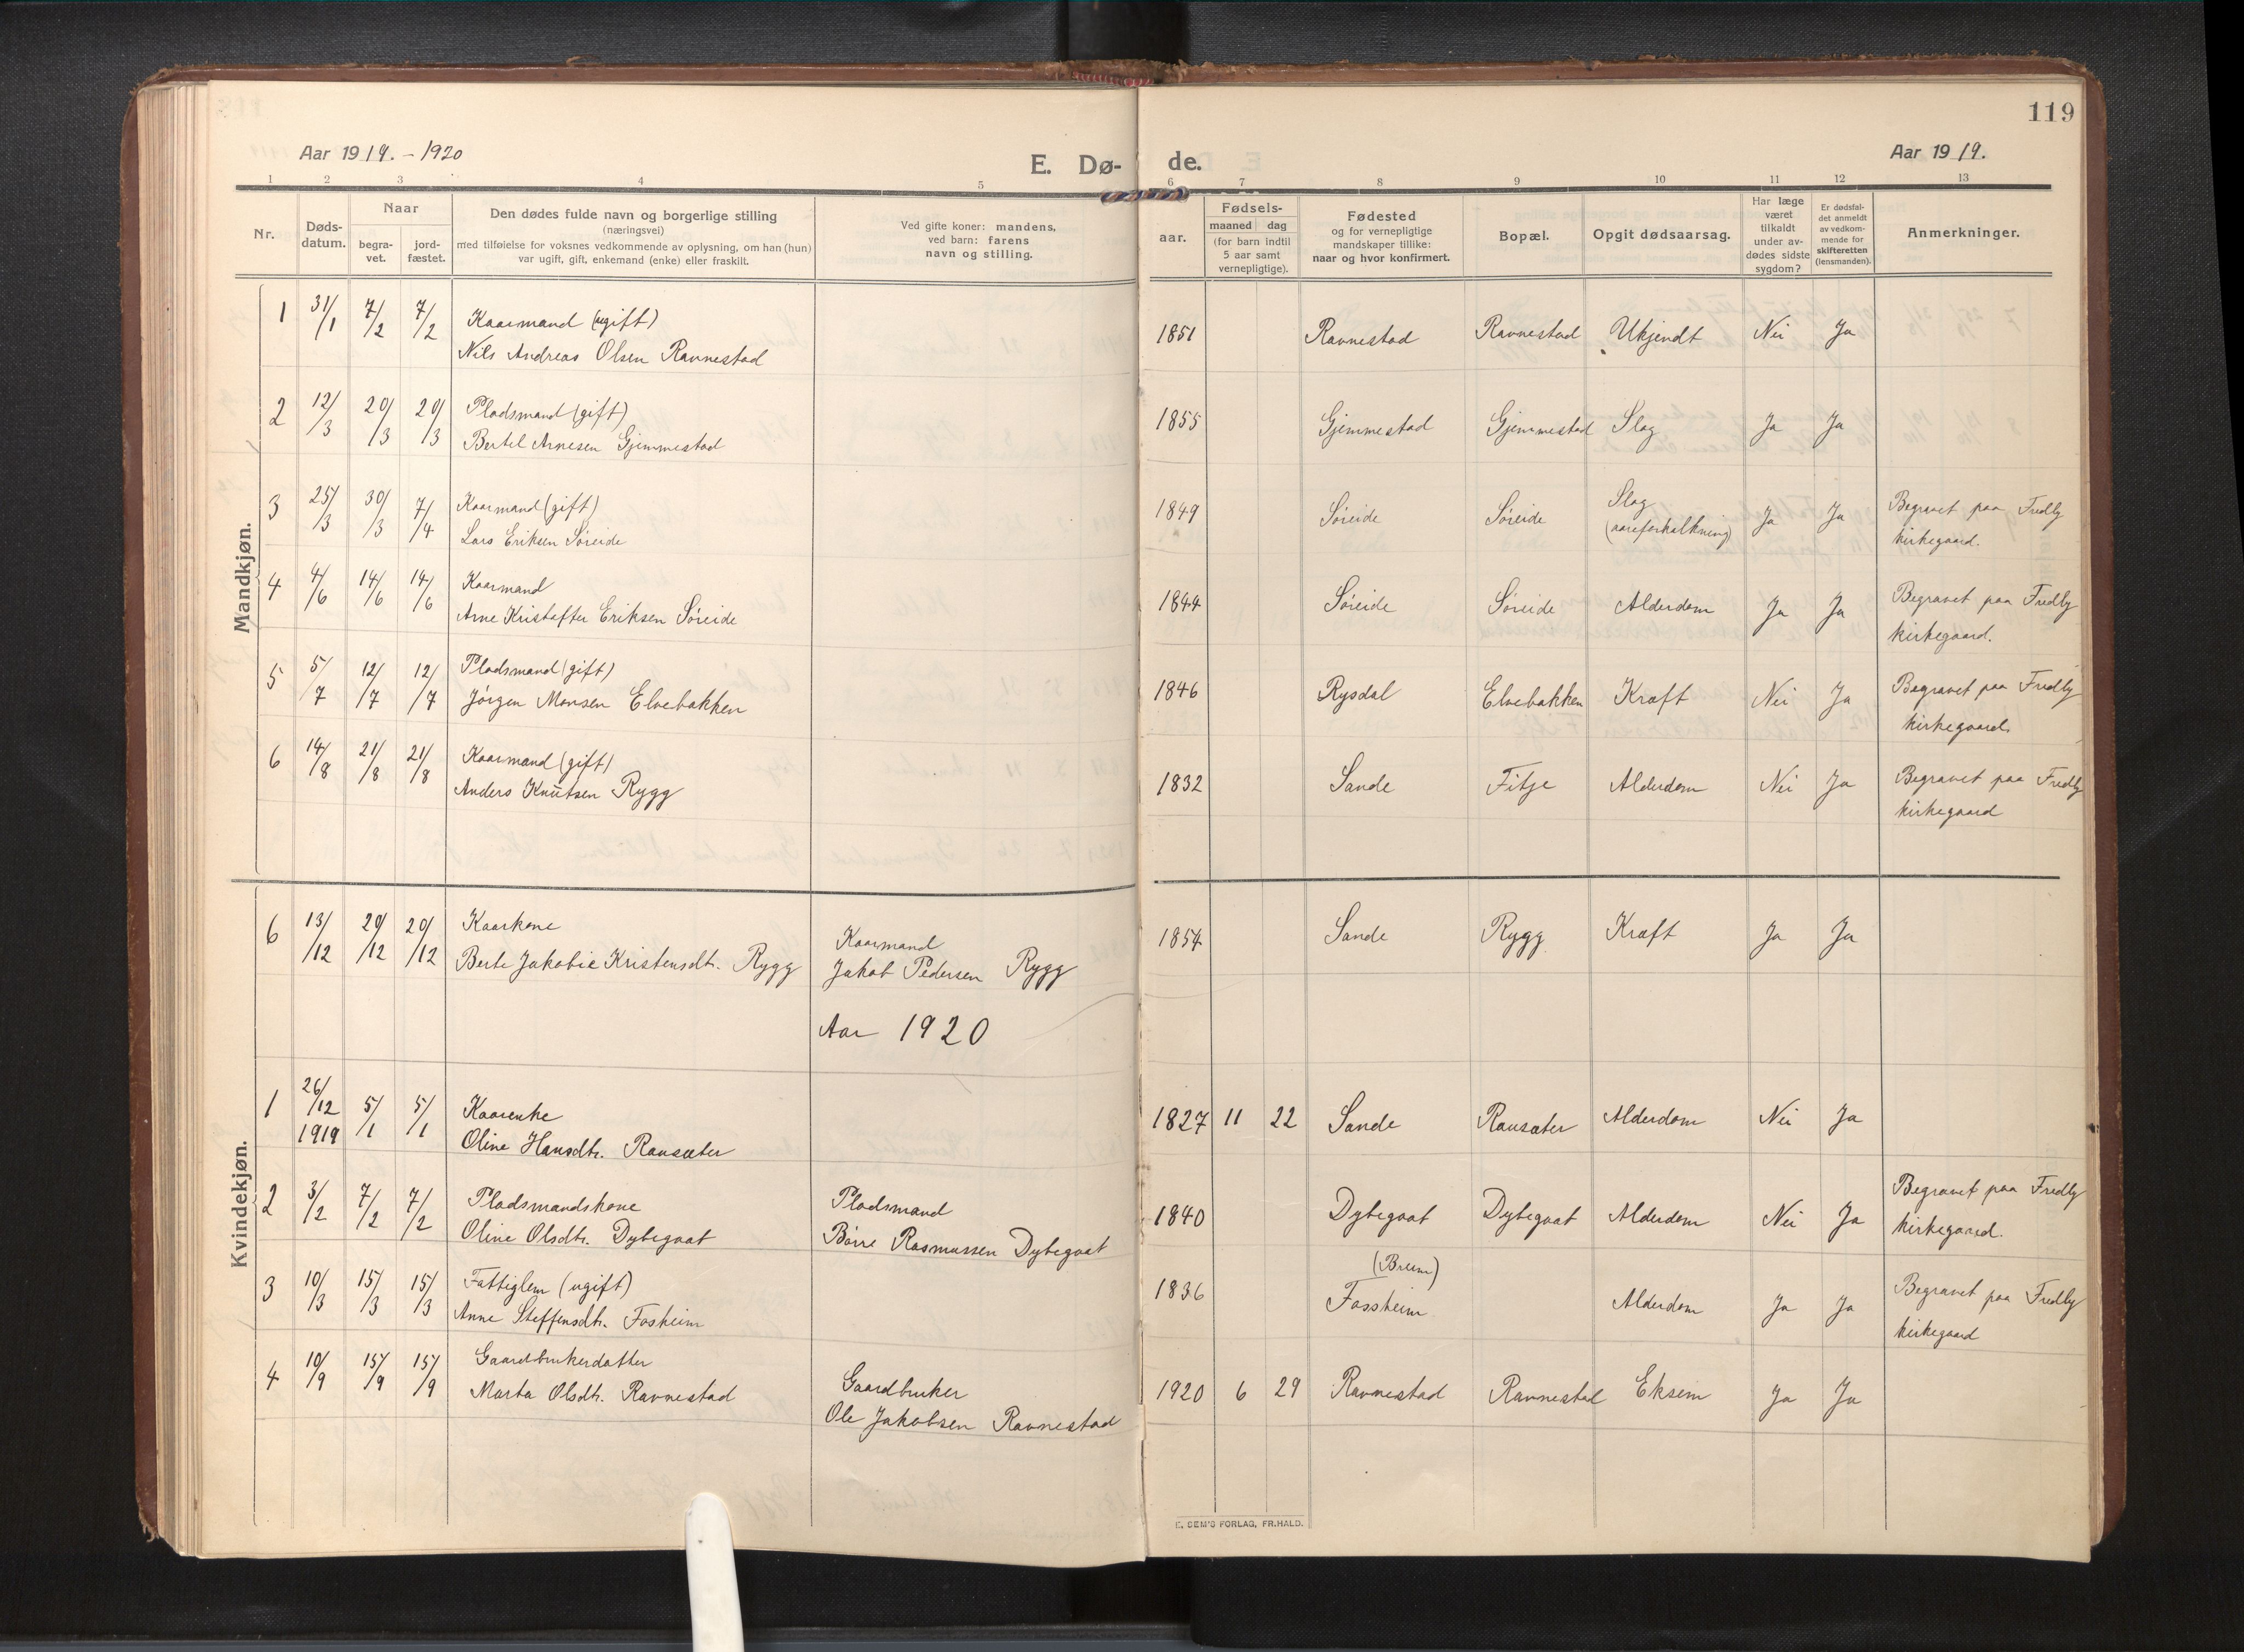 119
Aar 1919. - 1920
E. Dø-
de.
Aar 1919.
1 2 3 4 5 6 7 8 9 10 11 12 13
Nr.
Døds-
datum.
Naar
begra-
vet.
jord-
fæstet.
Den dødes fulde navn og borgerlige stilling
(næringsvei)
med tilføielse for voksnes vedkommende av oplysning, om han (hun)
var ugift, gift, enkemand (enke) eller fraskilt.
Ved gifte koner: mandens,
ved barn: farens
navn og stilling.
Fødsels-
aar.
maaned dag
(for barn indtil
5 aar samt
vernepligtige).
Fødested
og for vernepligtige
mandskaper tillike:
naar og hvor konfirmert.
Bopæl.
Opgit dødsaarsag.
Har læge
været
tilkaldt
under av-
dødes sidste
sygdom?
Er dødsfal-
det anmeldt
av vedkom-
mende for
skifteretten
(lensmanden).
Anmerkninger.
Mandkjøn.
1 31/1 7/2 7/2 Kaarmand (ugift)
Nils Andreas Olsen Ravnestad
1851 Ravnestad Ravnestad Ukjendt Nei Ja
2 12/3 20/3 20/3 Pladsmand (gift)
Bertel Arnesen Gjemmestad
1855 Gjemmestad Gjemmestad Slag Ja Ja
3 25/3 30/3 7/4 Kaarmand (gift)
Lars Eriksen Søreide
1849 Søreide Søreide Slag
(aareforkalkning) Ja Ja Begravet paa Fredly
kirkegaard.
4 4/6 14/6 14/6 Kaarmand
Arne Kristofter Eriksen Søreide
1844 Søreide Søreide Alderdom Ja Ja Begravet paa Fredly
kirkegaard.
5 5/7 12/7 12/7 Pladsmand (gift)
Jörgen Monsen Elvebakken
1846 Rysdal Elvebakken Kræft Nei Ja Begravet paa Fredly
kirkegaard.
6 14/8 21/8 21/8 Kaarmand (gift)
Anders Knutsen Rygg
1832 Sande Fitje Alderdom Nei Ja Begravet paa Fredly
kirkegaard
Kvindekjøn.
6 13/12 20/12 20/12 Kaarkone
Berte Jakobie Kristensdtr. Rygg
Kaarmand
Jakob Pedersen Rygg
1854 Sande Rygg Kræft Ja Ja
Aar 1920
1 26/12 1919 5/1 5/1 Kaarenke
Oline Hansdtr. Rausæter
1827 11 22 Sande Rausæter Alderdom Nei Ja
2 3/2 7/2 7/2 Pladsmandskone
Oline Olsdtr. Dybegaat
Pladsmand
Börre Rasmussen Dybegaat
1840 Dybegaat Dybegaat Alderdom Nei Ja Begravet paa Fredly
kirkegaard.
3 10/3 15/3 15/3 Fattiglem (ugift)
Anne Steffensdtr. Fosheim
1836 (Breim)
Fossheim Alderdom Ja Ja Begravet paa Fredly
kirkegaard
4 10/9 15/9 15/9 Gaardbrukerdatter
Marta Olsdtr. Ravnestad
Gaardbruker
Ole Jakobsen Ravnestad
1920 6 29 Ravnestad Ravnestad Eksem Ja Ja
E. SEM'S FORLAG, FR.HALD.